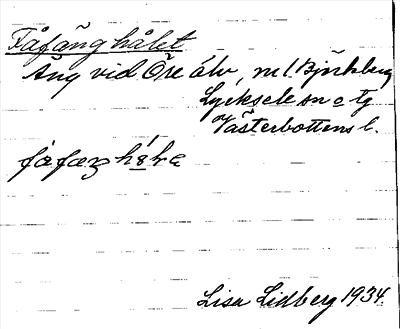 Fåfänghålet
Äng vid Öre älv, m l. Björkberg
Lycksele sn o tg
Västerbottens l.
Lisa Lidberg 1934.